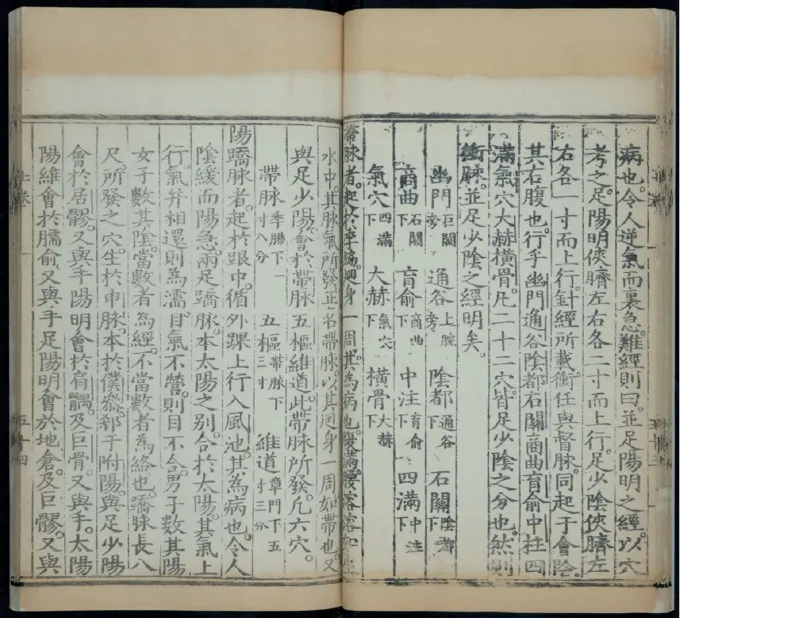 病也。令人逆氣而裏急。難經則曰。並足陽明之經。以穴
考之。足陽明俠臍左右各二寸而上行。足少陰俠臍左
右各一寸而上行。針經所載衝任與督脉。同起于會陰。
其右腹也。行乎幽門通谷陰都石關商曲肓俞中柱四
滿氣穴大赫橫骨。凡二十二穴。皆足少陰之分也。然則
衝脉。並足少陰之經明矣。
幽門巨闕旁 通谷上脘旁 陰都通谷下 石關陰都下
商曲石關下 肓俞商曲下 中注肓俞下 四滿中注下
氣穴四滿下 大赫氣穴下 橫骨大赫下
帶脉者。起於季脇。廻身一周。其為病也。腰腹
水中。其脉氣所發。正名帶脉。以其廻身一周如帶也。又
與足少陽。會於帶脉五樞維道。此帶脉所發。凡六穴。
帶脉季脇下一寸八分 五樞帶脉下三寸 維道章門下五寸三分
陽蹻脉者。起於跟中。循外踝上行入風池。其為病也。令人
陰緩而陽急。兩足蹻脉。本太陽之別。合於太陽。其氣上
行。氣并相還。則為濡目。氣不營。則目不合。男子數其陽
女子數其陰。當數者為經。不當數者為絡也。蹻脉長八
尺。所發之穴。生於申脉。本於僕參。郄于附陽。與足少陽
會於居髎。又與手陽明會於肩髃。及巨骨。又與手。太陽
陽維會於臑俞。又與手足陽明會於地倉。及巨髎。又與